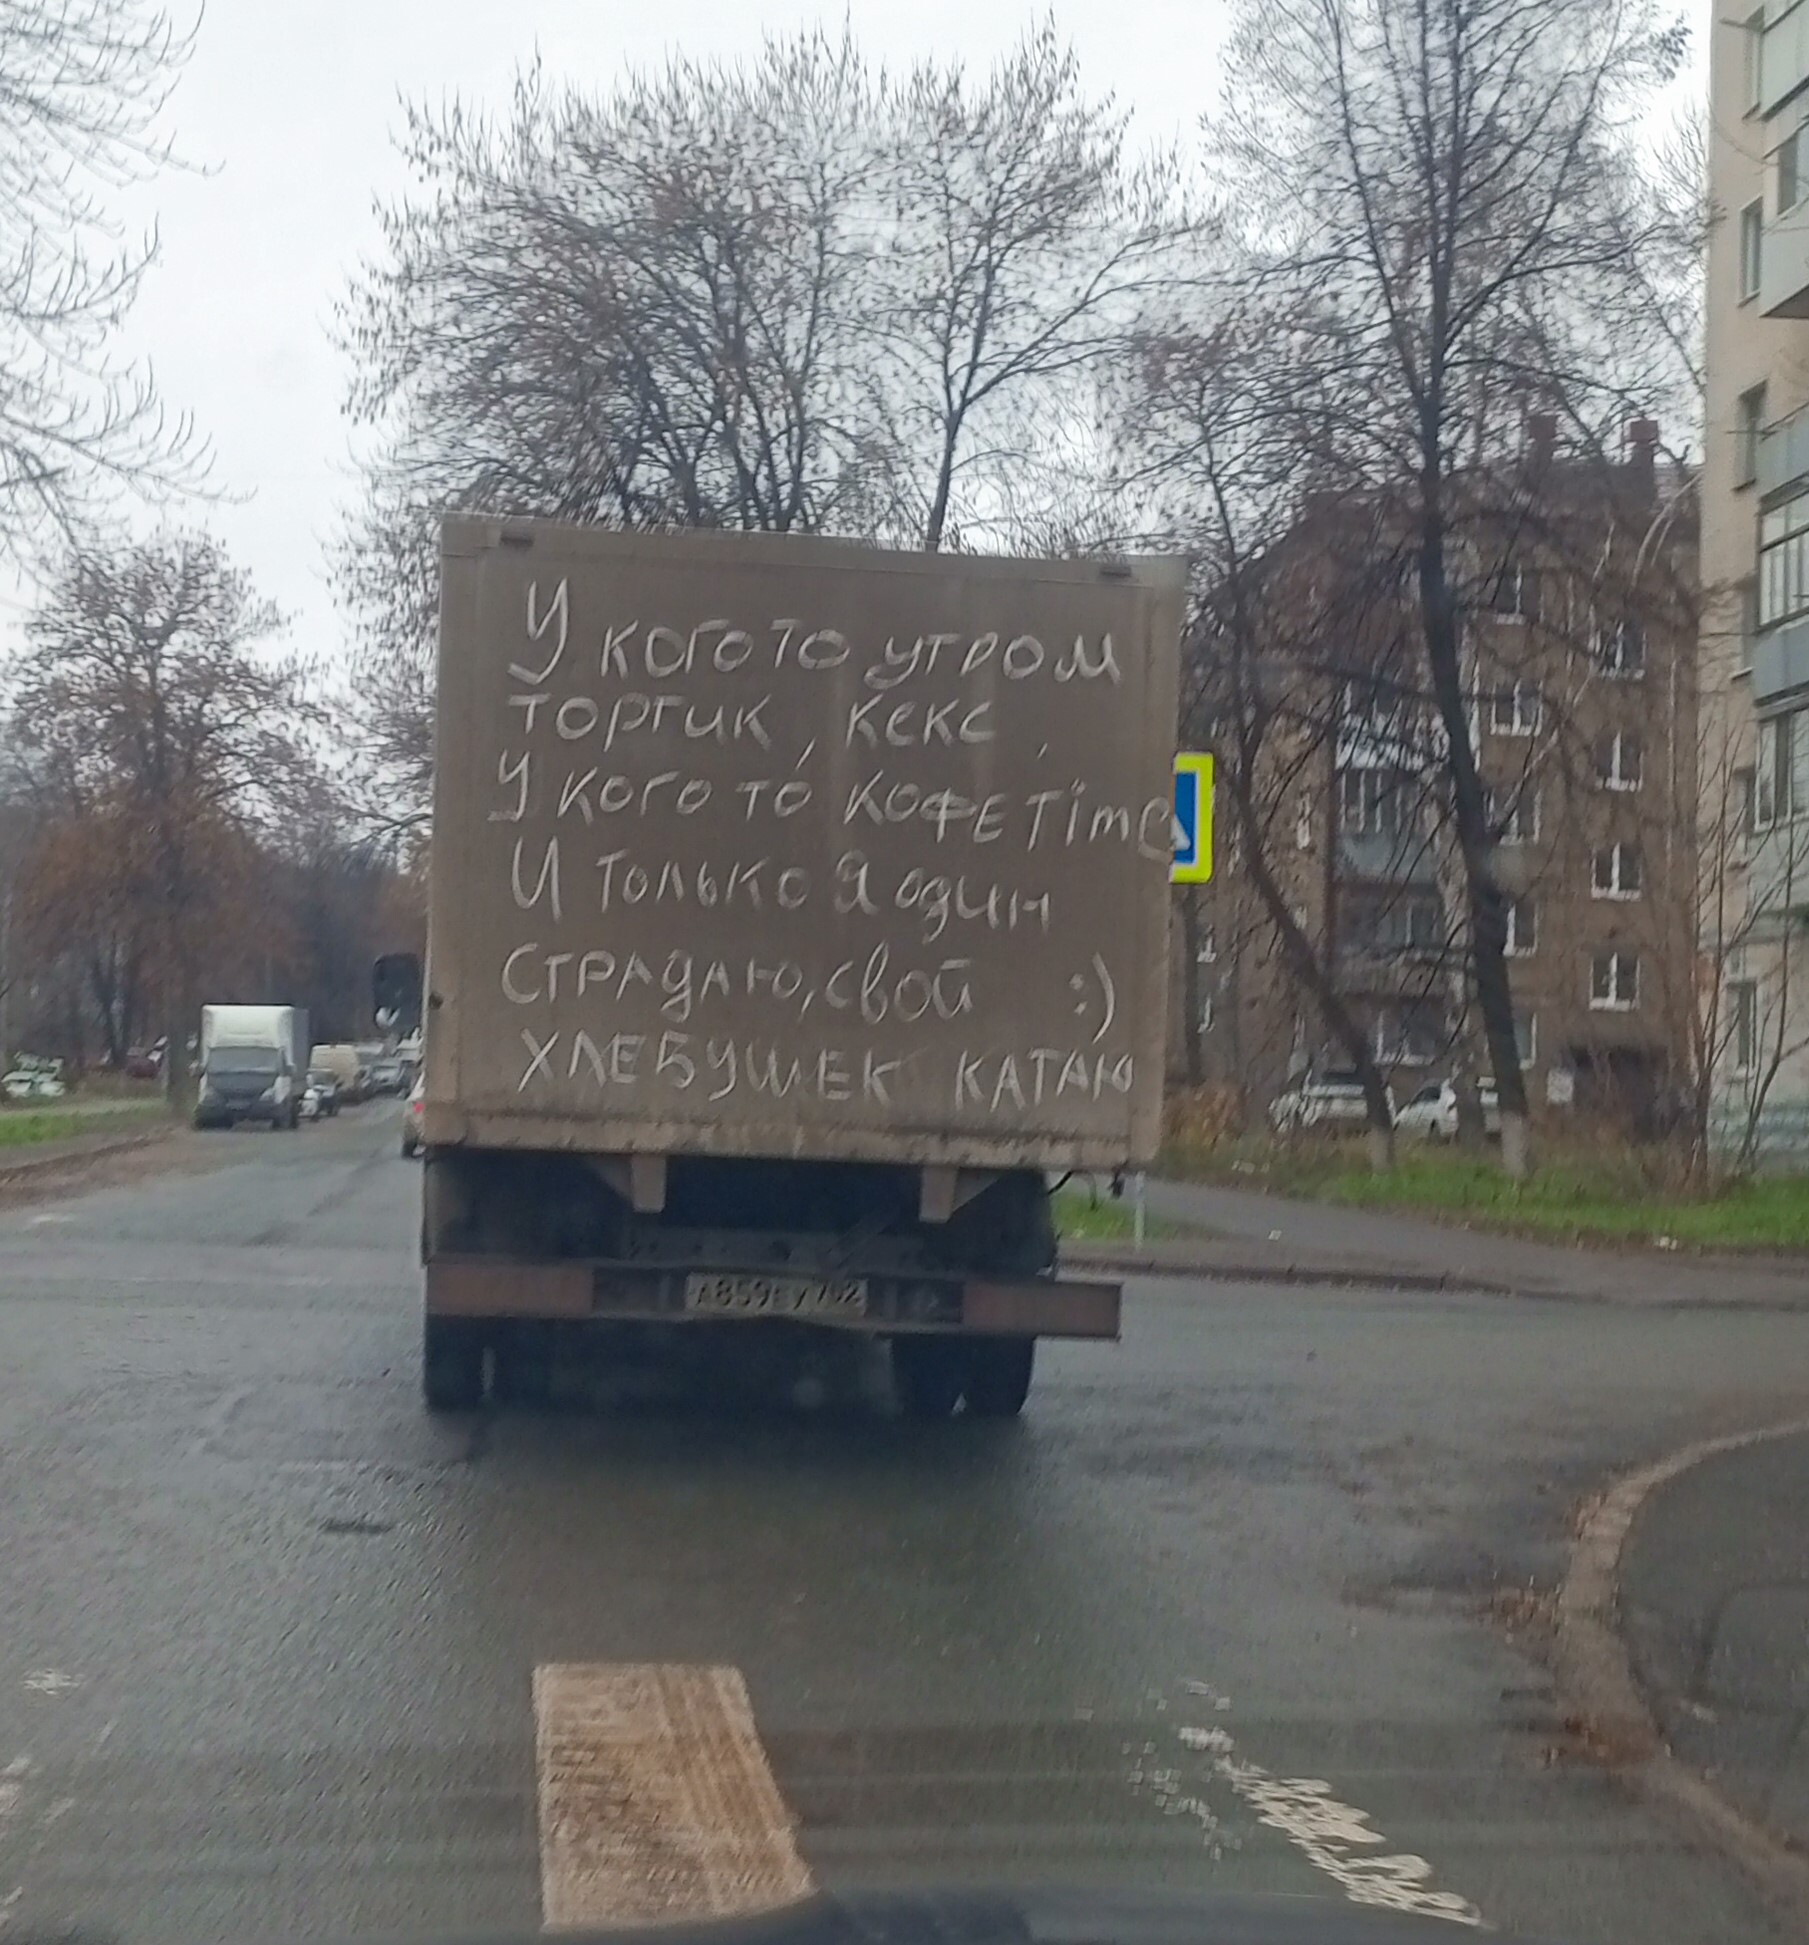 У кого то утром
тортик, кекс,
У кого то кофе Time
И только я один
Страдаю, свой :)
хлебушек катаю
А859ЕУ702